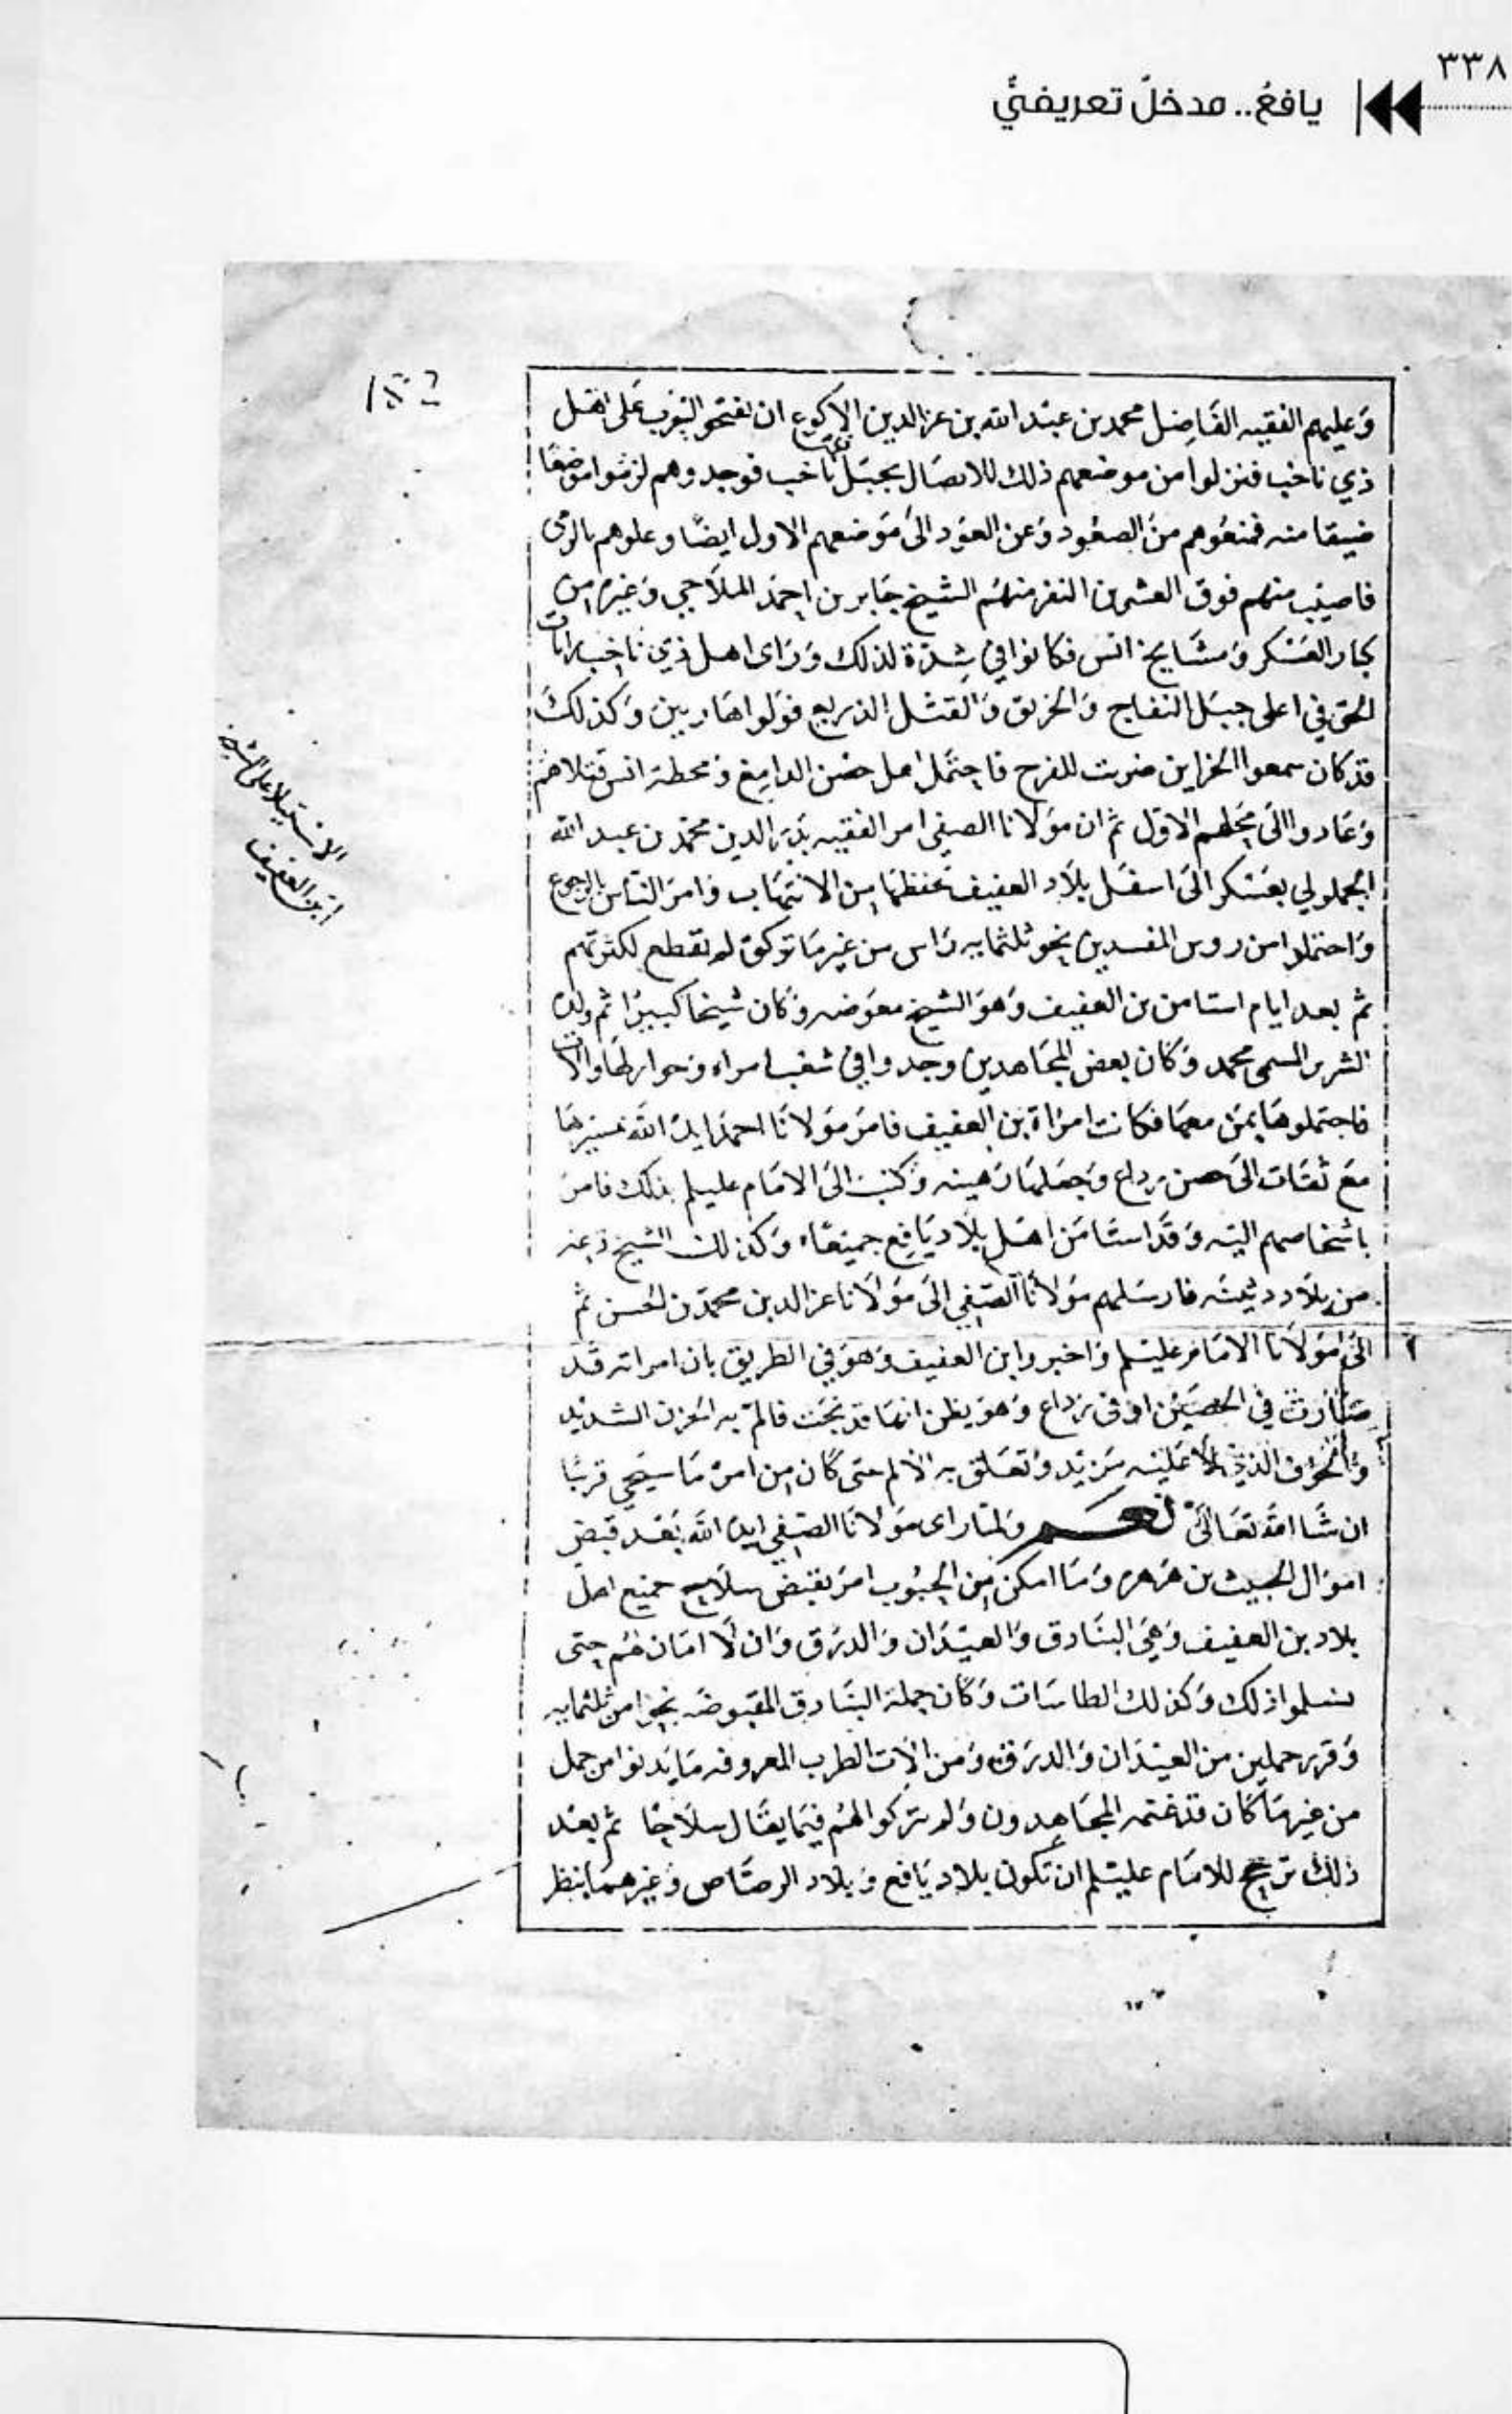 ٣٣٨
يافعُ.. مدخلٌ تعريفيٌّ
وعليهم الفقيه الفاضل محمد بن عبد الله بن عز الدين الاكوع ان يفتحوا الحرب على اهل
ذي ناخب فنزلوا من موضعهم ذلك للاتصال بجبل ناخب فوجدوهم لزموا موضعًا
ضيقا منه فمنعوهم من الصعود وعن العود الى موضعهم الاول ايضًا وعلوهم بالرمي
فاصيب منهم فوق العشرين النفر منهم الشيخ جابر بن احمد الملاحي وغيره من
كبار العسكر ومشايخ انس فكانوا في شدة لذلك وراى اهل ذي ناخب رايات
الحق في اعلى جبل النفاج والحريق والقتل الذريع فولوا هاربين وكذلك
قد كان سمعوا الخزاين ضربت للفرح فاحتمل اهل حضن الدامغ ومحطة انس قتلاهم
وعادوا الى محطهم الاول ثم ان مولانا الصفي امر الفقيه بدر الدين محمد بن عبد الله
الجملولي بعسكر الى اسفل بلاد العفيف تحفظها من الانتهاب وامر الناس بالرجوع
واحتملوا من روس المفسدين نحو ثلثمايه راس من غير ما تركوه لم تقطع لكثرتهم
ثم بعد ايام استامن بن العفيف وهو الشيخ معوضه وكان شيخا كبيرا ثم ولده
الشرير المسمى محمد وكان بعض المجاهدين وجدوا في شعب امراه وجوار لها
فاحتملوها بمن معها فكانت امراة بن العفيف فامر مولانا احمد ايده الله بتسييرها
مع ثقات الى حصن رداع وجعلها رهينه وكتب الى الامام عليلم بذلك فامر
باشخاصهم اليه وقد استامن اهل بلاد يافع جميعًا وكذلك الشيخ
من بلاد دثينه فارسلهم مولانا الصفي الى مولانا عز الدين محمد بن الحسن ثم
الى مولانا الامام عليلم واخبروا بن العفيف وهو في الطريق بان امراته قد
صارت في الحصين او في رداع وهو يظن انها قد نجت فالم به الحزن الشديد
والخوف الذي لا عليه مزيد وتعلق به الالم حتى كان من امره ما سيجي قريبًا
ان شا الله تعالى نعم ولما راى مولانا الصفي ايده الله بعد قبض
اموال الخبيث بن هرهره وما امكن من الحبوب امر بقبض سلاح جميع اهل
بلاد بن العفيف وهي البنادق والعيدان والدرق وان لا امان لهم حتى
يسلموا ذلك وكذلك الطاسات وكان جملة البنادق المقبوضه نحوا من ثلثمايه
وقرير حملين من العيدان والدرق ومن الات الطرب المعروفه ما يدنوا من حمل
من غير ما كان قد غنمه المجاهدون ولم يتركوا لهم فيما يقال سلاحًا ثم بعد
ذلك ترجح للامام عليلم ان تكون بلاد يافع وبلاد الرصاص وغيرهما بنظر
الاستيلا على الشيخ
ابن العفيف